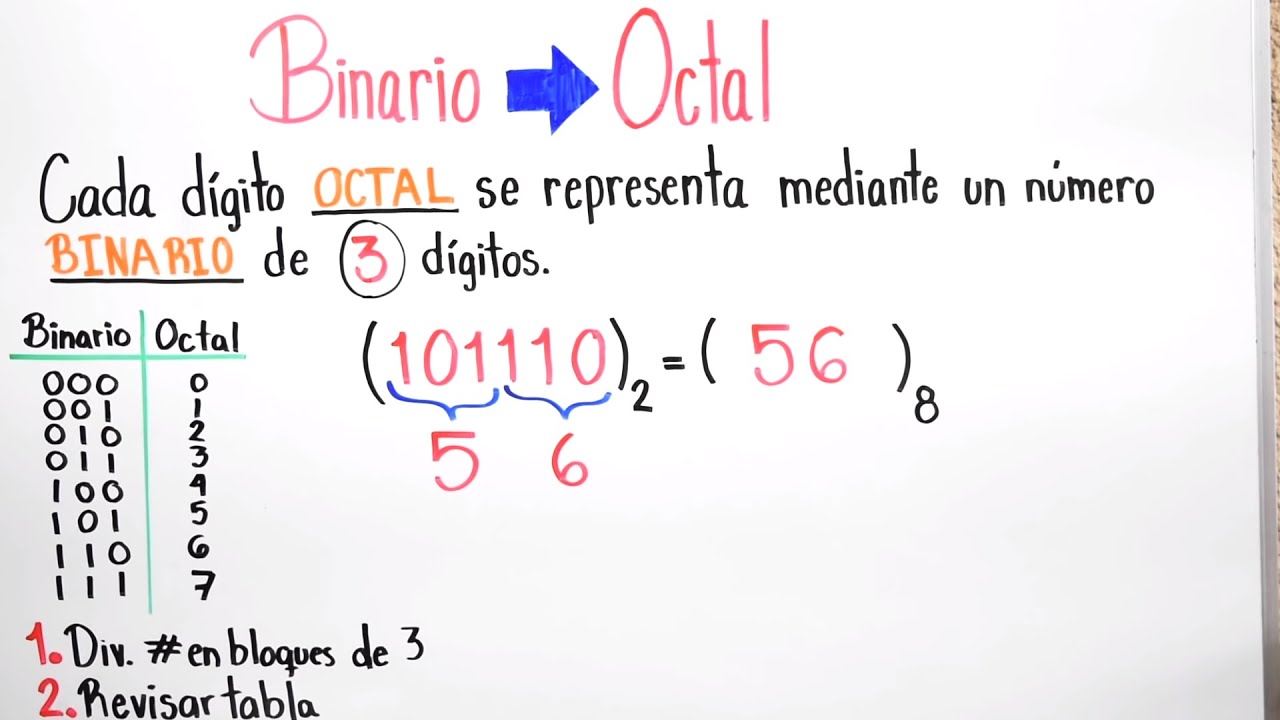 Binario Octal
Cada dígito OCTAL se representa mediante un número
BINARIO de 3 dígitos.
Binario Octal
000 0
001 1
010 2
011 3
100 4
101 5
110 6
111 7
(101110)2 = ( 56 )8
5 6
1. Div. # en bloques de 3
2. Revisar tabla